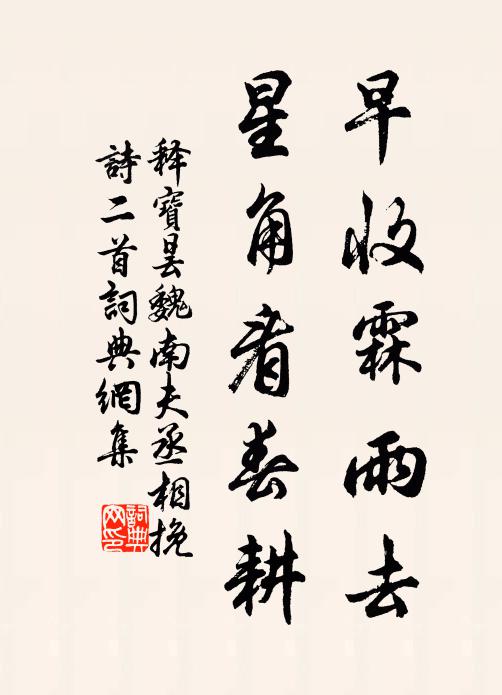 早收霖雨去
星角看春耕
释寶昙魏南夫丞相挽
詩二首詞典網集
詞典网印